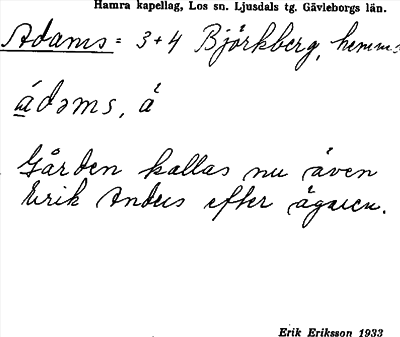 Hamra kapellag, Los sn. Ljusdals tg. Gävleborgs län.
Adams = 3+4 Björkberg, hemm:
ádəms, á
Gården kallas nu även
Erik Anders efter ägaren.
Erik Eriksson 1933